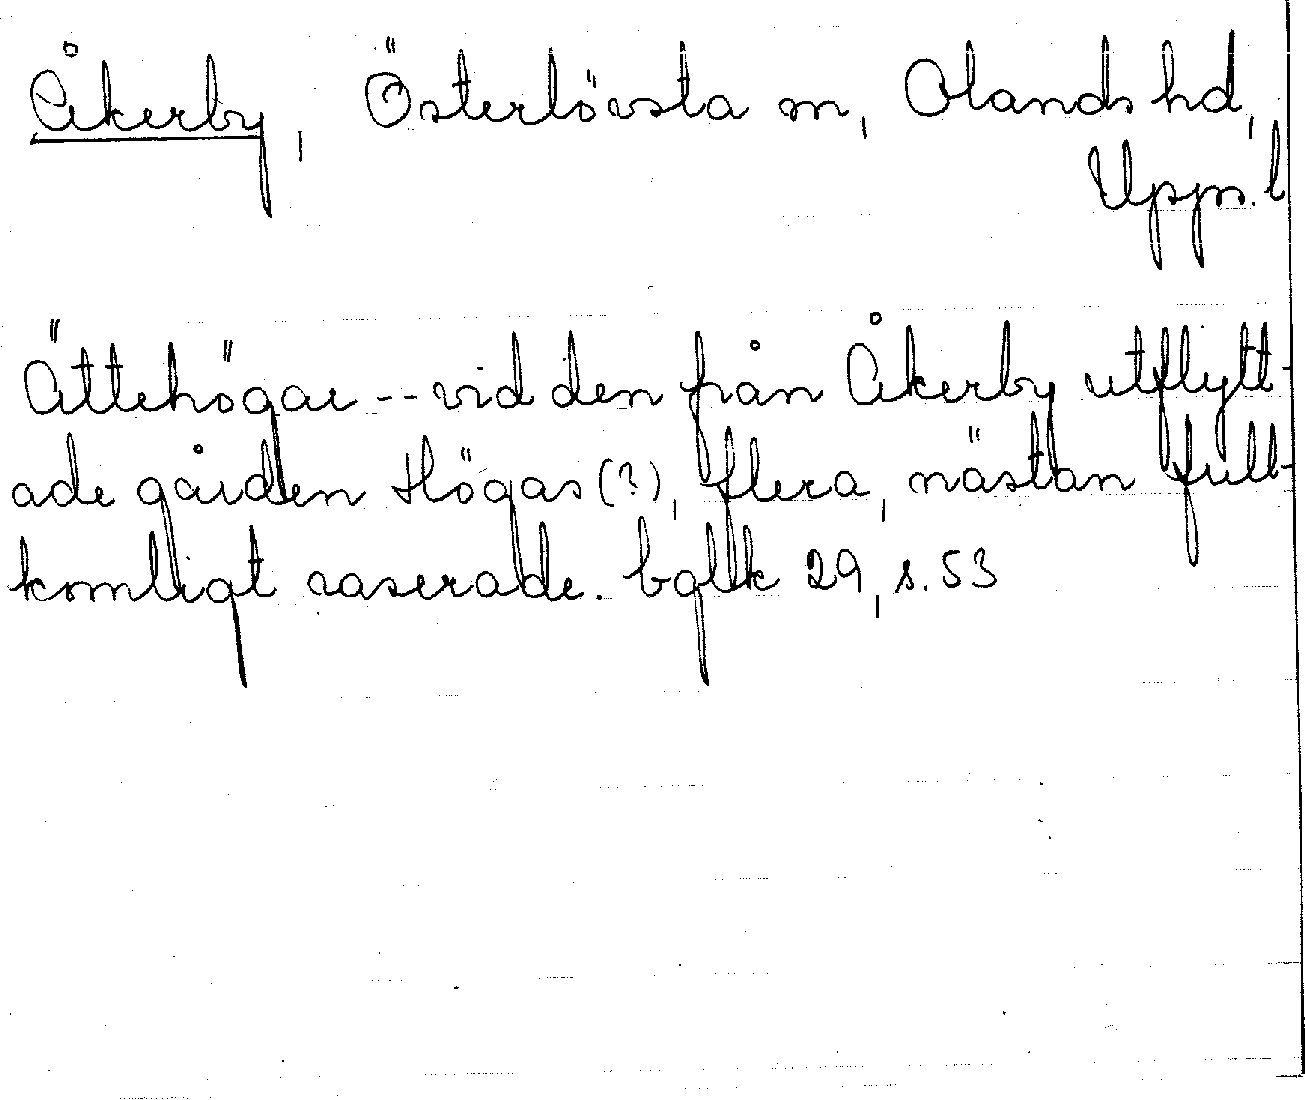 Åkerby, Österlövsta sn, Olands hd,
Upps. l
Ättehögar -- vid den från Åkerby utflytt-
ade gården Högas (?), flera, nästan full-
komligt raserade. bgllk 29, s. 53